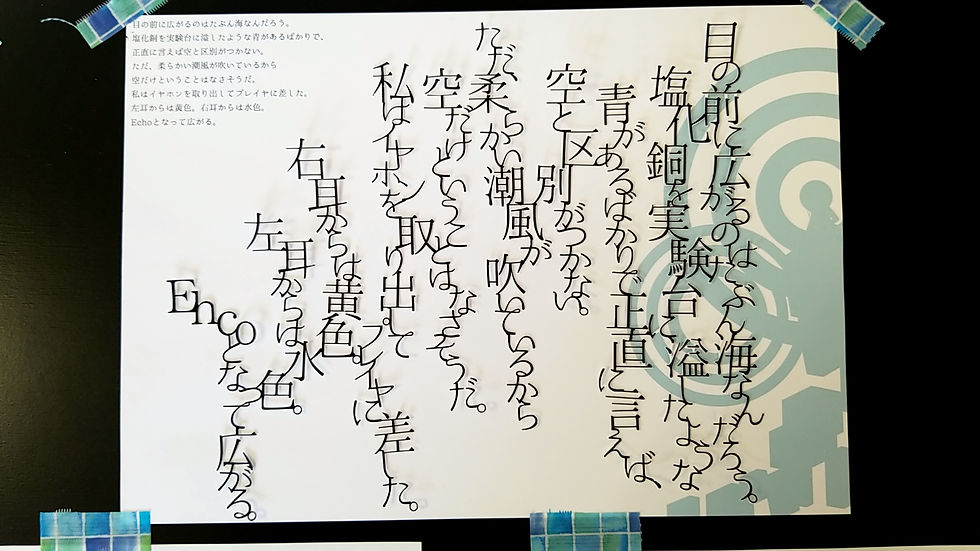 目の前に広がるのはたぶん海なんだろう。
塩化銅を実験台に溢したような青があるばかりで、
正直に言えば空と区別がつかない。
ただ、柔らかい潮風が吹いているから
空だけということはなさそうだ。
私はイヤホンを取り出してプレイヤに差した。
左耳からは黄色。右耳からは水色。
Echoとなって広がる。
目の前に広がるのはたぶん海なんだろう。
塩化銅を実験台に溢したような
青があるばかりで正直に言えば、
空と区別がつかない。
ただ、柔らかい潮風が吹いているから
空だけということはなさそうだ。
私はイヤホンを取り出してプレイヤに差した。
右耳からは黄色
左耳からは水色。
Encoとなって広がる。